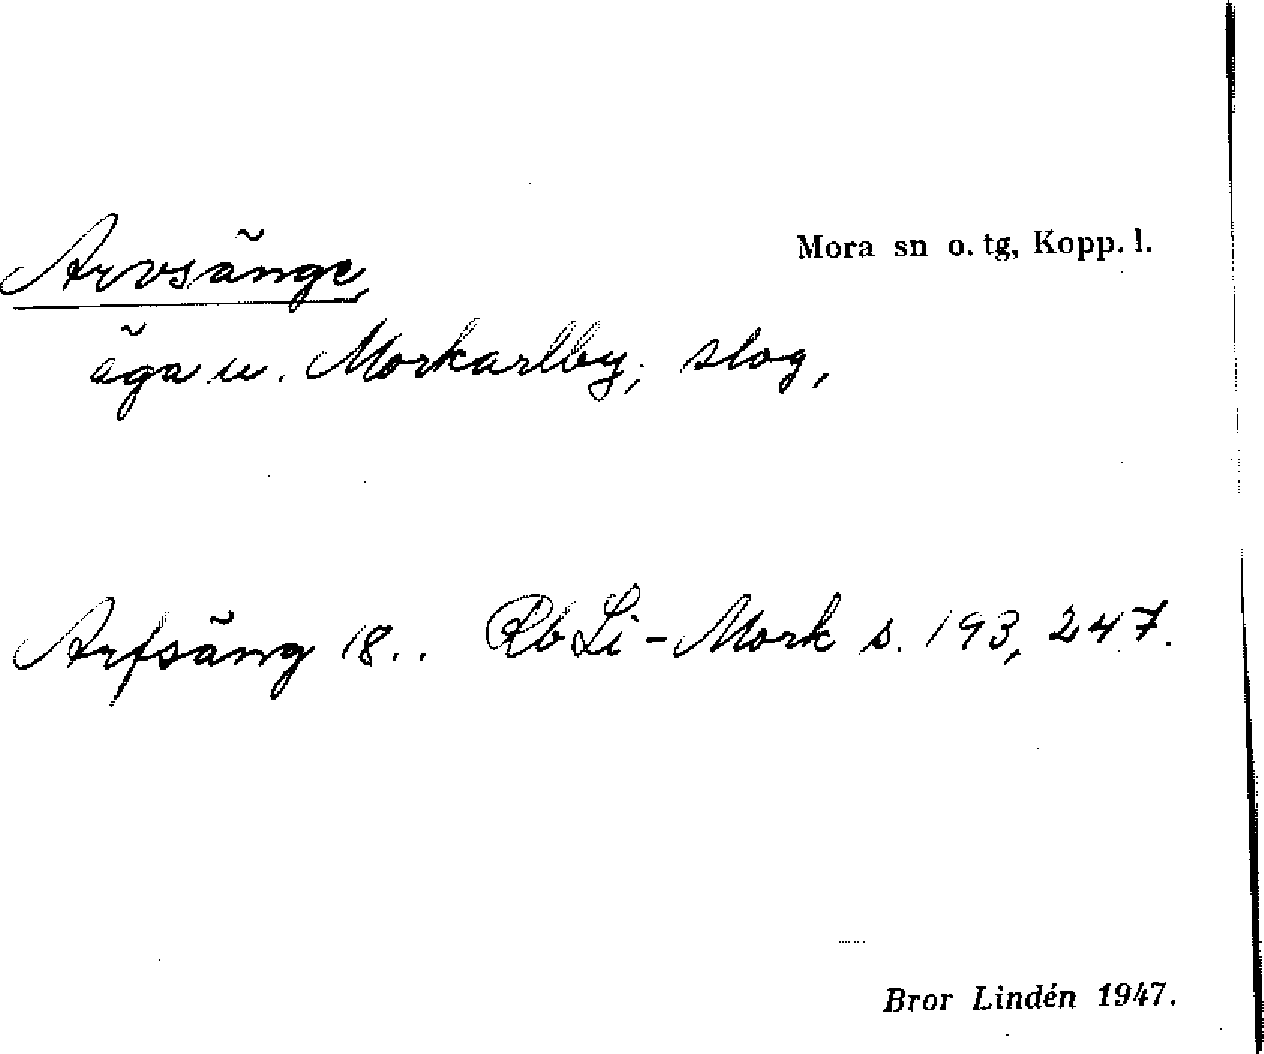 Arvsänge,
Mora sn o. tg, Kopp. l.
äga u. Morkarlby; slog,
Arfsäng 18.. Rb Li-Mork s. 193, 247.
Bror Lindén 1947.